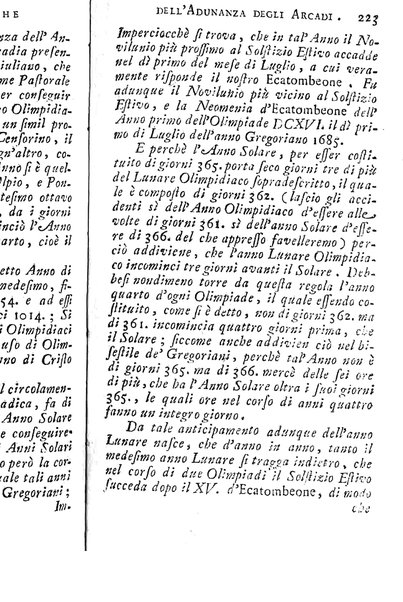 HE
zza dell'An-
cadia presen-
iuliano, che
me Pastorale
per conseguir
o Olimpidia-
un simil pro
Censorino, il
gn'altro, co-
anno è quel-
lpio, e Pon-
tesimo ottavo
da i giorni
inciò l'Anno
arto, cioè il
detto Anno di
medesimo, fi-
54. e ad essi
ci 1014.; Si
i Olimpidiaci
uso di Olim-
no di Cristo
l circolamen-
adica, fa di
Anno Solare
e conseguire
i Anni Solari
o però la cor-
uale tali anni
Gregoriani;
Im-
DELL'ADUNANZA DEGLI ARCADI. 223
Imperciocchè si trova, che in tal'Anno il No-
vilunio più prossimo al Solstizio Estivo accadde
nel dì primo del mese di Luglio, a cui vera-
mente risponde il nostro Ecatombeone. Fu
adunque il Novilunio più vicino al Solstizio
Estivo, e la Neomenia d'Ecatombeone dell'
Anno primo dell'Olimpiade DCXVI. il dì pri-
mo di Luglio dell'anno Gregoriano 1685.
E perchè l'Anno Solare, per esser costi-
tuito di giorni 365. porta seco giorni tre di più
del Lunare Olimpidiaco sopradescritto, il qua-
le è composto di giorni 362. (lascio gli acci-
denti sì dell'Anno Olimpidiaco d'essere alle
volte di giorni 361. sì dell'anno Solare d'esse-
re di 366. del che appresso favelleremo) per-
ciò addiviene, che l'anno Lunare Olimpidia-
co incominci tre giorni avanti il Solare. Deb-
besi nondimeno torre da questa regola l'anno
quarto d'ogni Olimpiade, il quale essendo co-
stituito, come si è detto, non di giorni 362. ma
di 361. incomincia quattro giorni prima, che
il Solare; siccome anche addivien ciò nel bi-
sestile de' Gregoriani, perchè tal'Anno non è
di giorni 365. ma di 366. mercè delle sei ore
di più, che ha l'Anno Solare oltra i suoi giorni
365., le quali ore nel corso di anni quattro
fanno un integro giorno.
Da tale anticipamento adunque dell'anno
Lunare nasce, che d'anno in anno, tanto il
medesimo anno Lunare si tragga indietro, che
nel corso di due Olimpiadi il Solstizio Estivo
succeda dopo il XV. d'Ecatombeone, di modo
che